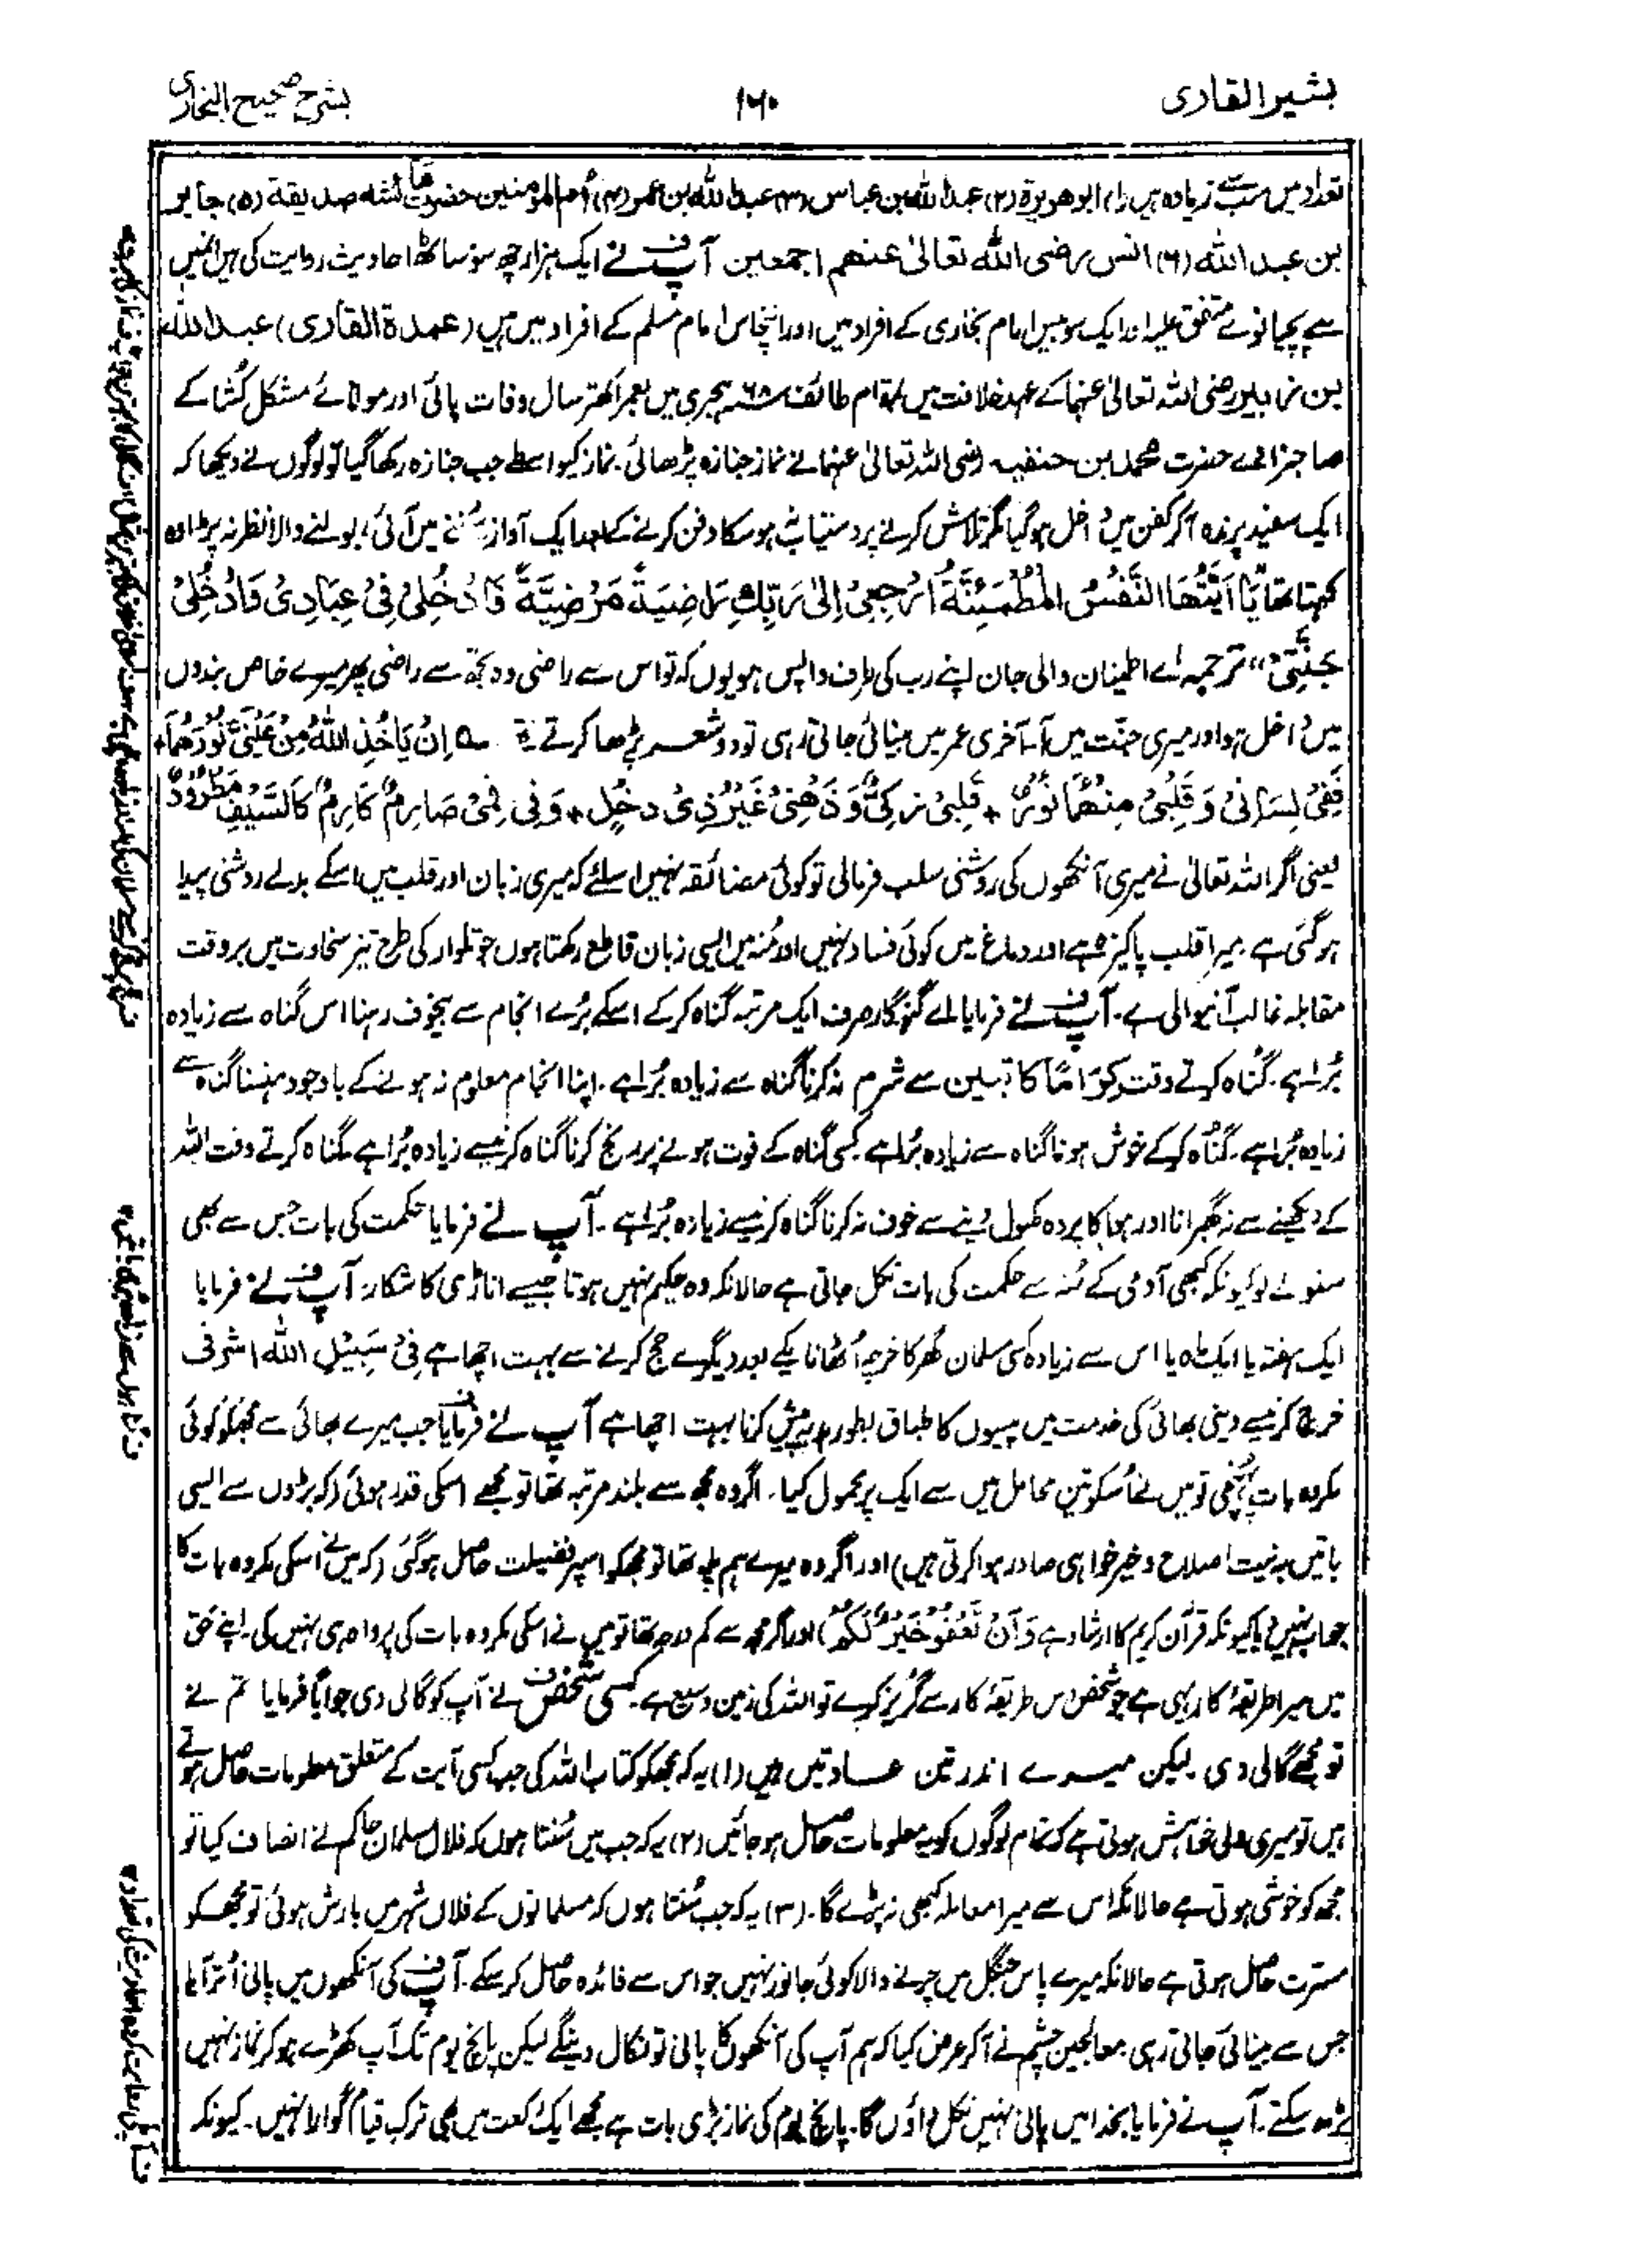 بشیر القاری
۱۶۰
بشرح صحیح البخاری
تعداد میں سب سے زیادہ ہیں (۱) ابوھریرۃ (۲) عبداللہ بن عباس (۳) عبداللہ بن عمر (۴) اُم المومنین حضرت عائشہ صدیقۃ (۵) جابر
بن عبداللہ (۶) انس رضی اللہ تعالیٰ عنھم اجمعین آپ نے ایک ہزار چھ سو ساٹھ احادیث روایت کی ہیں انہیں
سے پچیانوے متفق علیہ اور ایک سو بیس امام بخاری کے افراد میں اور انچاس امام مسلم کے افراد میں ہیں (عمدۃ القاری) عبداللہ
بن زبیر رضی اللہ تعالیٰ عنہما کے عہد خلافت میں بمقام طائف ۶۸ ہجری میں بعمر اکھتر سال وفات پائی اور مولائے مشکل کشا کے
صاحبزادے حضرت محمد بن حنفیہ رضی اللہ تعالیٰ عنہما نے نماز جنازہ پڑھائی۔ نماز کیواسطے جب جنازہ رکھا گیا تو لوگوں نے دیکھا کہ
ایک سفید پرندہ آکر کفن میں داخل ہوگیا مگر تلاش کرنے پر دستیاب نہ ہوسکا دفن کرنے کے بعد ایک آواز سننے میں آئی، بولنے والا نظر نہ پڑا وہ
کہتا تھا یٰٓاَیَّتُھَا النَّفْسُ الْمُطْمَئِنَّۃُ ارْجِعِیْ اِلٰی رَبِّكِ رَاضِیَۃً مَّرْضِیَّۃً فَادْخُلِیْ فِیْ عِبَادِیْ وَادْخُلِیْ
جَنَّتِیْ“ ترجمہ اے اطمینان والی جان اپنے رب کی طرف واپس ہو یوں کہ تو اس سے راضی وہ تجھ سے راضی پھر میرے خاص بندوں
میں داخل ہو اور میری جنت میں آ۔ آخری عمر میں بینائی جاتی رہی تو دو شعر پڑھا کرتے تھے ؎ اِنْ یَّاخُذِ اللّٰہُ مِنْ عَیْنَیَّ نُوْرَھُمَا٭
فَفِیْ لِسَانِیْ وَقَلْبِیْ مِنْھُمَا نُوْرٌ ٭ قَلْبِیْ زَکِیٌّ وَّذِھْنِیْ غَیْرُ ذِیْ دخل٭ وَفِی فَمِیْ صَارِمٌ کَارِمٌ کَالسَّیْفِ مَطْرُوْرٌ
یعنی اگر اللہ تعالیٰ نے میری آنکھوں کی روشنی سلب فرمالی تو کوئی مضائقہ نہیں اسلئے کہ میری زبان اور قلب میں اسکے بدلے روشنی پیدا
ہوگئی ہے میرا قلب پاکیزہ ہے اور دماغ میں کوئی فساد نہیں اور مُنہ میں ایسی زبان قاطع رکھتا ہوں جو تلوار کی طرح تیز سخاوت میں بروقت
مقابلہ غالب آنیوالی ہے۔ آپ نے فرمایا اے گنہگار صرف ایک مرتبہ گناہ کرکے اسکے بُرے انجام سے بیخوف رہنا اس گناہ سے زیادہ
بُرا ہے۔ گناہ کرتے وقت کِرَامًا کاتبین سے شرم نہ کرنا گناہ سے زیادہ بُرا ہے۔ اپنا انجام معلوم نہ ہونے کے باوجود ہنسنا گناہ سے
زیادہ بُرا ہے۔ گناہ کرکے خوش ہونا گناہ سے زیادہ بُرا ہے کسی گناہ کے فوت ہونے پر رنج کرنا گناہ کرنیسے زیادہ بُرا ہے گناہ کرتے وقت اللہ
کے دیکھنے سے نہ گھبرانا اور ہوا کا پردہ کھول دینے سے خوف نہ کرنا گناہ کرنیسے زیادہ بُرا ہے۔ آپ نے فرمایا حکمت کی بات جس سے بھی
سنو لے لو کیونکہ کبھی آدمی کے مُنہ سے حکمت کی بات نکل جاتی ہے حالانکہ وہ حکیم نہیں ہوتا جیسے اناڑی کا شکار۔ آپ نے فرمایا
ایک ہفتہ یا ایک ماہ یا اس سے زیادہ کسی مسلمان گھر کا خرچہ اُٹھانا یکے بعد دیگرے حج کرنے سے بہت اچھا ہے فِیْ سَبِیْلِ اللّٰہ اشرفی
خرچ کرنیسے دینی بھائی کی خدمت میں پیسوں کا طباق بطور ہدیہ پیش کرنا بہت اچھا ہے آپ نے فرمایا جب میرے بھائی سے مجھکو کوئی
مکروہ بات پہنچی تو میں نے اُسکو تین محامل میں سے ایک پر محمول کیا۔ اگر وہ مجھ سے بلند مرتبہ تھا تو مجھے اسکی قدر ہوئی (کہ بڑوں سے ایسی
باتیں بہ نیت اصلاح و خیر خواہی صادر ہوا کرتی ہیں) اور اگر وہ میرے ہم پلہ تھا تو مجھکو اسپر فضیلت حاصل ہوگئی (کہ میں نے اسکی مکروہ بات کا
جواب نہیں دیا کیونکہ قرآن کریم کا ارشاد ہے وَاَنْ تَعْفُوْ خَیْرٌ لَّکُمْ) اور اگر مجھ سے کم درجہ تھا تو میں نے اسکی مکروہ بات کی پرواہ ہی نہیں کی۔ اپنے حق
میں میرا طریقۂ کار یہی ہے جو شخص اس طریقۂ کار سے گریز کرے تو اللہ کی زمین وسیع ہے۔ کسی شخص نے آپ کو گالی دی جواباً فرمایا تم نے
تو مجھے گالی دی لیکن میرے اندر تین عادتیں ہیں (۱) یہ کہ مجھکو کتاب اللہ کی جب کسی آیت کے متعلق معلومات حاصل ہوتے
ہیں تو میری دلی خواہش ہوتی ہے کہ تمام لوگوں کو یہ معلومات حاصل ہوجائیں (۲) یہ کہ جب میں سُنتا ہوں کہ فلاں مسلمان حاکم نے انصاف کیا تو
مجھ کو خوشی ہوتی ہے حالانکہ اس سے میرا معاملہ کبھی نہ پڑے گا۔ (۳) یہ کہ جب سُنتا ہوں کہ مسلمانوں کے فلاں شہر میں بارش ہوئی تو مجھکو
مسرت حاصل ہوتی ہے حالانکہ میرے پاس جنگل میں چرنے والا کوئی جانور نہیں جو اس سے فائدہ حاصل کرسکے۔ آپ کی آنکھوں میں پانی اُتر آیا
جس سے بینائی جاتی رہی معالجین چشم نے آکر عرض کیا کہ ہم آپ کی آنکھوں کا پانی تو نکال دینگے لیکن پانچ یوم تک آپ کھڑے ہوکر نماز نہیں
پڑھ سکتے۔ آپ نے فرمایا بخدا میں پانی نہیں نکلواؤں گا۔ پانچ یوم کی نماز بڑی بات ہے مجھے ایک رکعت میں بھی ترک قیام گوارا نہیں۔ کیونکہ